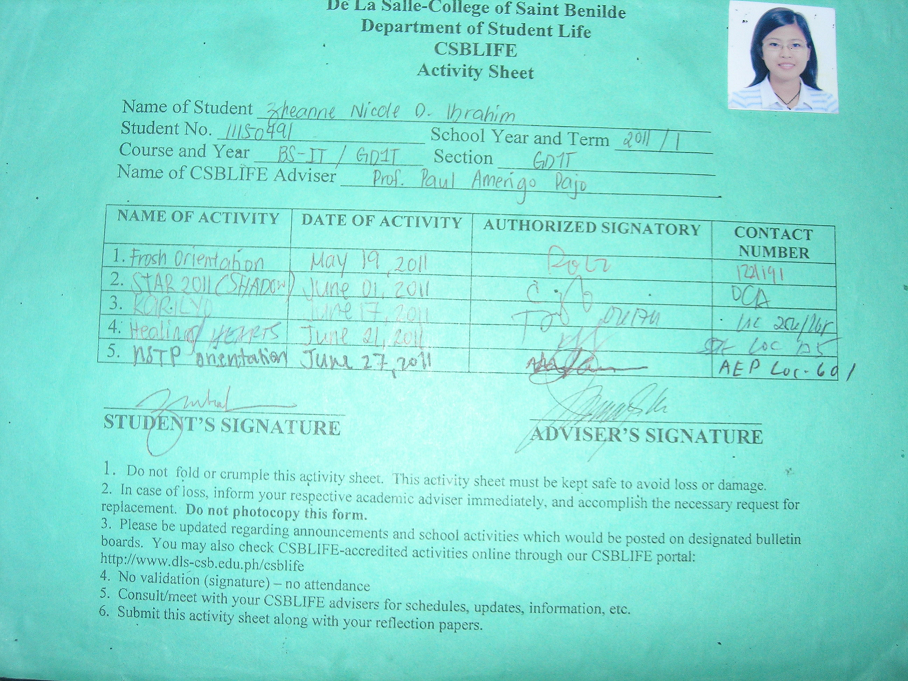 De La Salle-College of Saint Benilde
Department of Student Life
CSBLIFE
Activity Sheet
Name of Student Zheanne Nicole D. Ibrahim
Student No. 11150491 School Year and Term 2011 / 1
Course and Year BS-IT / GD1T Section GD1T
Name of CSBLIFE Adviser Prof. Paul Amerigo Pajo
NAME OF ACTIVITY DATE OF ACTIVITY AUTHORIZED SIGNATORY CONTACT NUMBER
1. Frosh Orientation May 19, 2011
2. STAR 2011 (SHADOW) June 01, 2011 DCA
3. June 17, 2011
4. Healing HEARTS June 21, 2011 Loc
5. NSTP orientation June 27, 2011 AEP Loc-601
STUDENT'S SIGNATURE ADVISER'S SIGNATURE
1. Do not fold or crumple this activity sheet. This activity sheet must be kept safe to avoid loss or damage.
2. In case of loss, inform your respective academic adviser immediately, and accomplish the necessary request for
replacement. Do not photocopy this form.
3. Please be updated regarding announcements and school activities which would be posted on designated bulletin
boards. You may also check CSBLIFE-accredited activities online through our CSBLIFE portal:
http://www.dls-csb.edu.ph/csblife
4. No validation (signature) – no attendance
5. Consult/meet with your CSBLIFE advisers for schedules, updates, information, etc.
6. Submit this activity sheet along with your reflection papers.